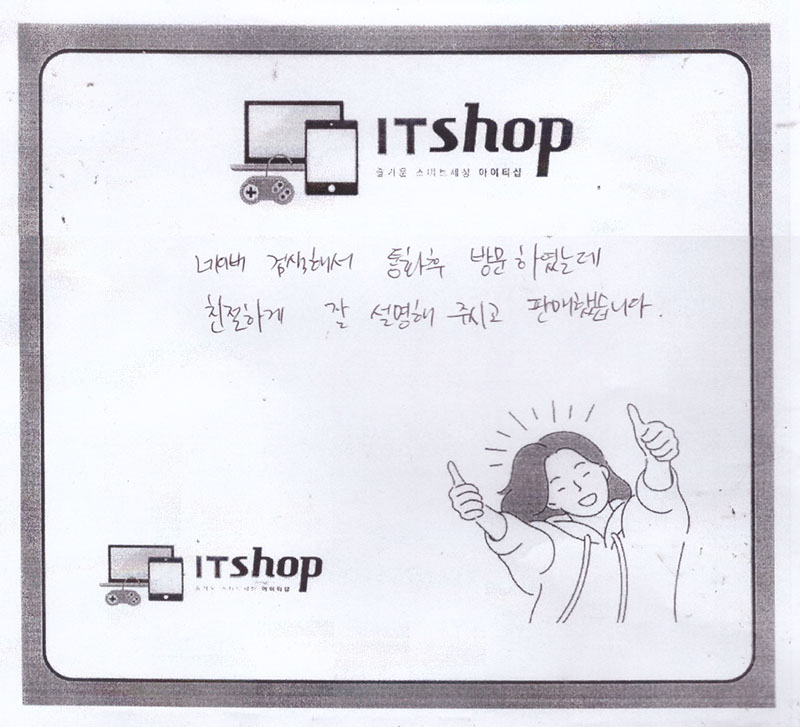 ITshop
즐거운 스마트세상 아이티샵
네이버 검색해서 통화후 방문하였는데
친절하게 잘 설명해 주시고 판매했습니다.
ITshop
즐거운 스마트세상 아이티샵